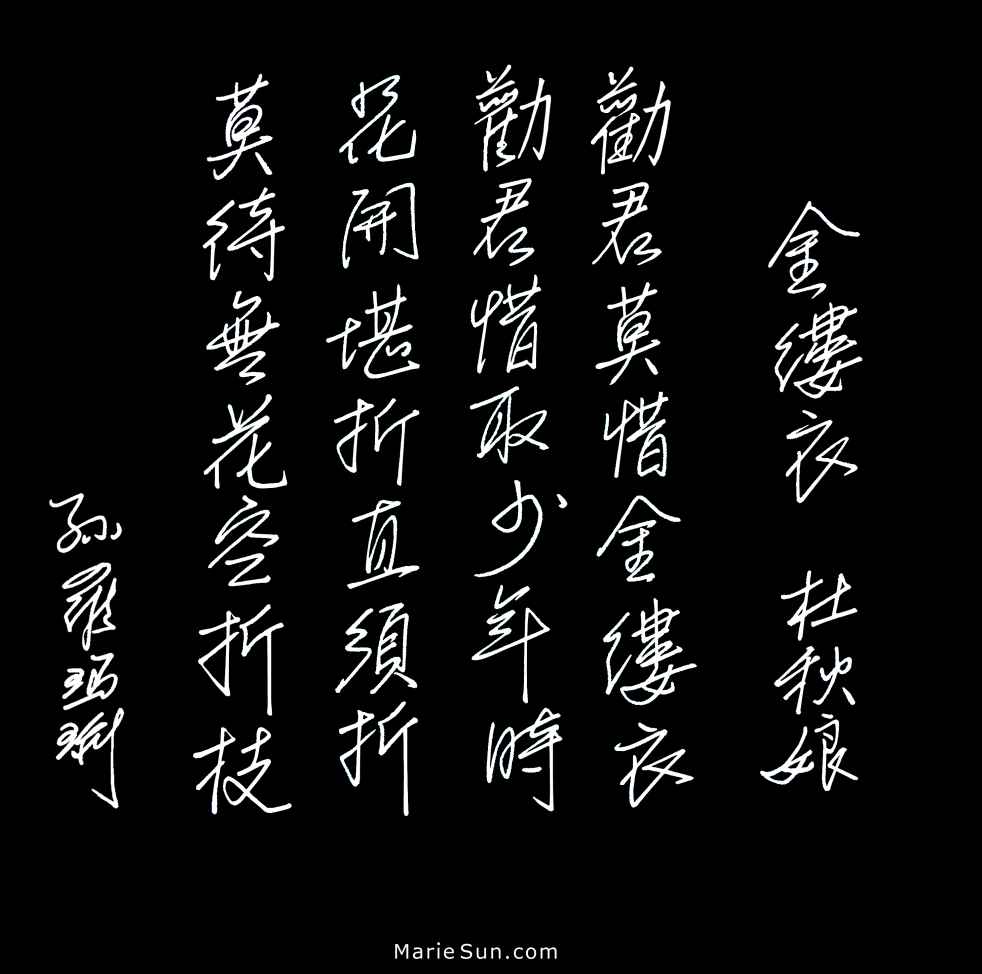 金縷衣 杜秋娘
勸君莫惜金縷衣
勸君惜取少年時
花開堪折直須折
莫待無花空折枝
孫羅瑪琍
MarieSun.com